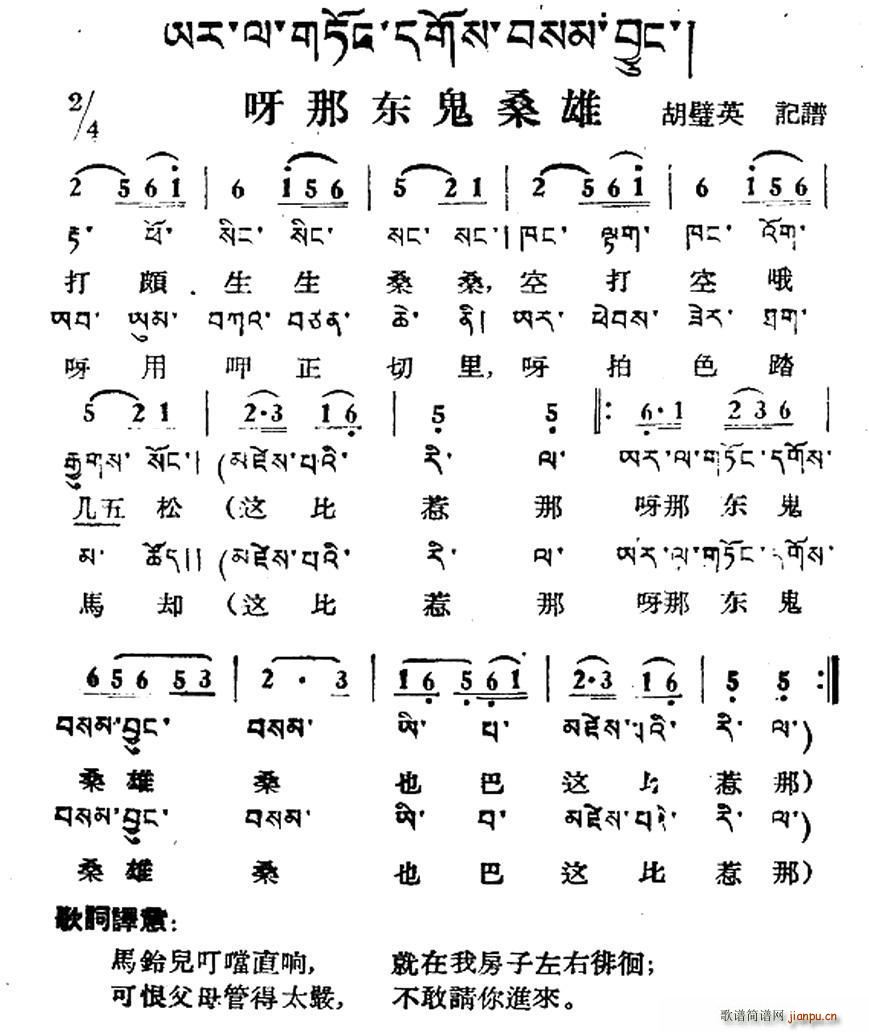 ཨར་ལ་གཏོང་དགོས་བསམ་བྱུང་།
2/4 呀那东鬼桑雄 胡璧英 記譜
2 5 6 1 | 6 1 5 6 | 5 2 1 | 2 5 6 1 | 6 1 5 6 |
རྟ་ ཕོ་ སིང་ སིང་ སང་ སང་། ཁང་ ལྟག་ ཁང་ འོག་
打 頗 生 生 桑 桑, 空 打 空 哦
ཨབ་ ཡུམ་ བཀའ་ བཙན་ ཆེ་ ནི། ཨར་ ཕེབས་ ཟེར་ ཐག་
呀 用 呷 正 切 里, 呀 拍 色 踏
5 2 1 | 2·3 1 6 | 5 5 ‖: 6·1 2 3 6 |
རྒྱུགས་ སོང་། (མཛེས་པའི་ རི་ ལ་ ཨར་ལ་གཏོང་དགོས་
几五 松 (这 比 惹 那 呀那 东 鬼
མ་ ཚོད།། (མཛེས་པའི་ རི་ ལ་ ཨར་ལ་གཏོང་དགོས་
馬 却 (这 比 惹 那 呀那 东 鬼
6 5 6 5 3 | 2 · 3 | 1 6 5 6 1 | 2·3 1 6 | 5 5 :‖
བསམ་བྱུང་ བསམ་ ཨི་ པ་ མཛེས་པའི་ རི་ ལ་)
桑 雄 桑 也 巴 这 比 惹 那)
བསམ་བྱུང་ བསམ་ ཨི་ པ་ མཛེས་པའི་ རི་ ལ་)
桑 雄 桑 也 巴 这 比 惹 那)
歌詞譯意:
馬鈴兒叮噹直响, 就在我房子左右徘徊;
可恨父母管得太嚴, 不敢請你進來。
歌谱简谱网 jianpu.cn